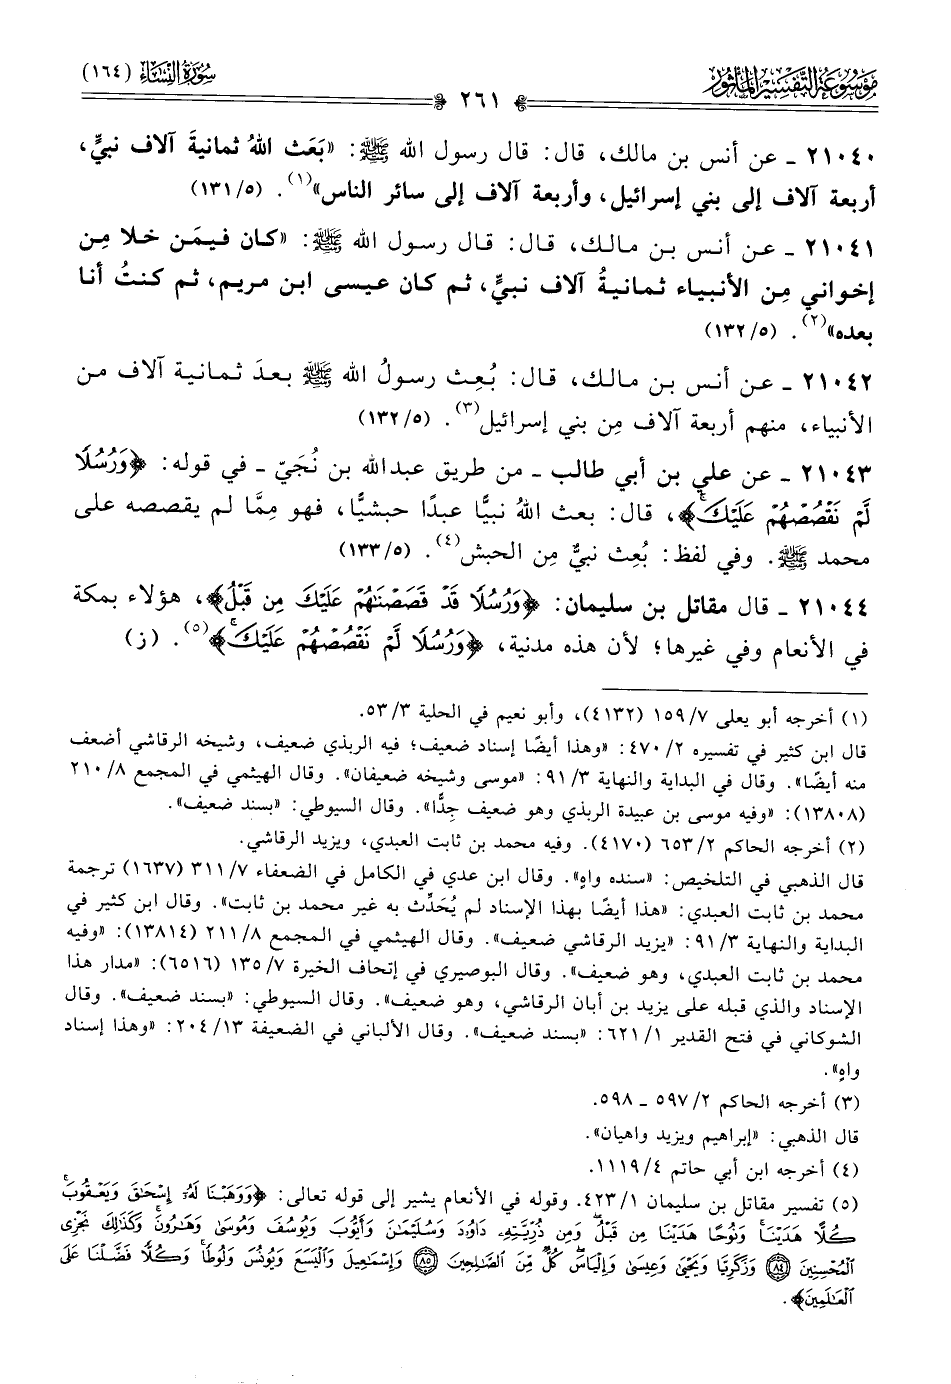 موسوعة التفسير المأثور
سورة النساء (١٦٤)
٢٦١
٢١٠٤٠ ـ عن أنس بن مالك، قال: قال رسول الله ﷺ: «بَعَث اللهُ ثمانيةَ آلاف نبيٍّ،
أربعة آلاف إلى بني إسرائيل، وأربعة آلاف إلى سائر الناس»(١). (١٣١/٥)
٢١٠٤١ ـ عن أنس بن مالك، قال: قال رسول الله ﷺ: «كان فيمَن خلا مِن
إخواني مِن الأنبياء ثمانيةُ آلاف نبيٍّ، ثم كان عيسى ابن مريم، ثم كنتُ أنا
بعده»(٢). (١٣٢/٥)
٢١٠٤٢ ـ عن أنس بن مالك، قال: بُعِث رسولُ الله ﷺ بعدَ ثمانية آلاف من
الأنبياء، منهم أربعة آلاف مِن بني إسرائيل(٣). (١٣٢/٥)
٢١٠٤٣ ـ عن علي بن أبي طالب ـ من طريق عبدالله بن نُجَيّ ـ في قوله: ﴿وَرُسُلًا
لَّمْ نَقْصُصْهُمْ عَلَيْكَۚ﴾، قال: بعث اللهُ نبيًّا عبدًا حبشيًّا، فهو مِمَّا لم يقصصه على
محمد ﷺ. وفي لفظ: بُعِث نبيٌّ مِن الحبش(٤). (١٣٣/٥)
٢١٠٤٤ ـ قال مقاتل بن سليمان: ﴿وَرُسُلًا قَدْ قَصَصْنَٰهُمْ عَلَيْكَ مِن قَبْلُ﴾، هؤلاء بمكة
في الأنعام وفي غيرها؛ لأن هذه مدنية، ﴿وَرُسُلًا لَّمْ نَقْصُصْهُمْ عَلَيْكَۚ﴾(٥). (ز)
(١) أخرجه أبو يعلى ١٥٩/٧ (٤١٣٢)، وأبو نعيم في الحلية ٥٣/٣.
قال ابن كثير في تفسيره ٤٧٠/٢: «وهذا أيضًا إسناد ضعيف؛ فيه الربذي ضعيف، وشيخه الرقاشي أضعف
منه أيضًا». وقال في البداية والنهاية ٩١/٣: «موسى وشيخه ضعيفان». وقال الهيثمي في المجمع ٢١٠/٨
(١٣٨٠٨): «وفيه موسى بن عبيدة الربذي وهو ضعيف جِدًّا». وقال السيوطي: «بسند ضعيف».
(٢) أخرجه الحاكم ٦٥٣/٢ (٤١٧٠). وفيه محمد بن ثابت العبدي، ويزيد الرقاشي.
قال الذهبي في التلخيص: «سنده واهٍ». وقال ابن عدي في الكامل في الضعفاء ٣١١/٧ (١٦٣٧) ترجمة
محمد بن ثابت العبدي: «هذا أيضًا بهذا الإسناد لم يُحَدِّث به غير محمد بن ثابت». وقال ابن كثير في
البداية والنهاية ٩١/٣: «يزيد الرقاشي ضعيف». وقال الهيثمي في المجمع ٢١١/٨ (١٣٨١٤): «وفيه
محمد بن ثابت العبدي، وهو ضعيف». وقال البوصيري في إتحاف الخيرة ١٣٥/٧ (٦٥١٦): «مدار هذا
الإسناد والذي قبله على يزيد بن أبان الرقاشي، وهو ضعيف». وقال السيوطي: «بسند ضعيف». وقال
الشوكاني في فتح القدير ٦٢١/١: «بسند ضعيف». وقال الألباني في الضعيفة ٢٠٤/١٣: «وهذا إسناد
واهٍ».
(٣) أخرجه الحاكم ٥٩٧/٢ ـ ٥٩٨.
قال الذهبي: «إبراهيم ويزيد واهيان».
(٤) أخرجه ابن أبي حاتم ١١١٩/٤.
(٥) تفسير مقاتل بن سليمان ٤٢٣/١. وقوله في الأنعام يشير إلى قوله تعالى: ﴿وَوَهَبْنَا لَهُۥٓ إِسْحَٰقَ وَيَعْقُوبَۚ
كُلًّا هَدَيْنَاۚ وَنُوحًا هَدَيْنَا مِن قَبْلُۖ وَمِن ذُرِّيَّتِهِۦ دَاوُۥدَ وَسُلَيْمَٰنَ وَأَيُّوبَ وَيُوسُفَ وَمُوسَىٰ وَهَٰرُونَۚ وَكَذَٰلِكَ نَجْزِى
ٱلْمُحْسِنِينَ ۝٨٤ وَزَكَرِيَّا وَيَحْيَىٰ وَعِيسَىٰ وَإِلْيَاسَۖ كُلٌّ مِّنَ ٱلصَّٰلِحِينَ ۝٨٥ وَإِسْمَٰعِيلَ وَٱلْيَسَعَ وَيُونُسَ وَلُوطًاۚ وَكُلًّا فَضَّلْنَا عَلَى
ٱلْعَٰلَمِينَ﴾.